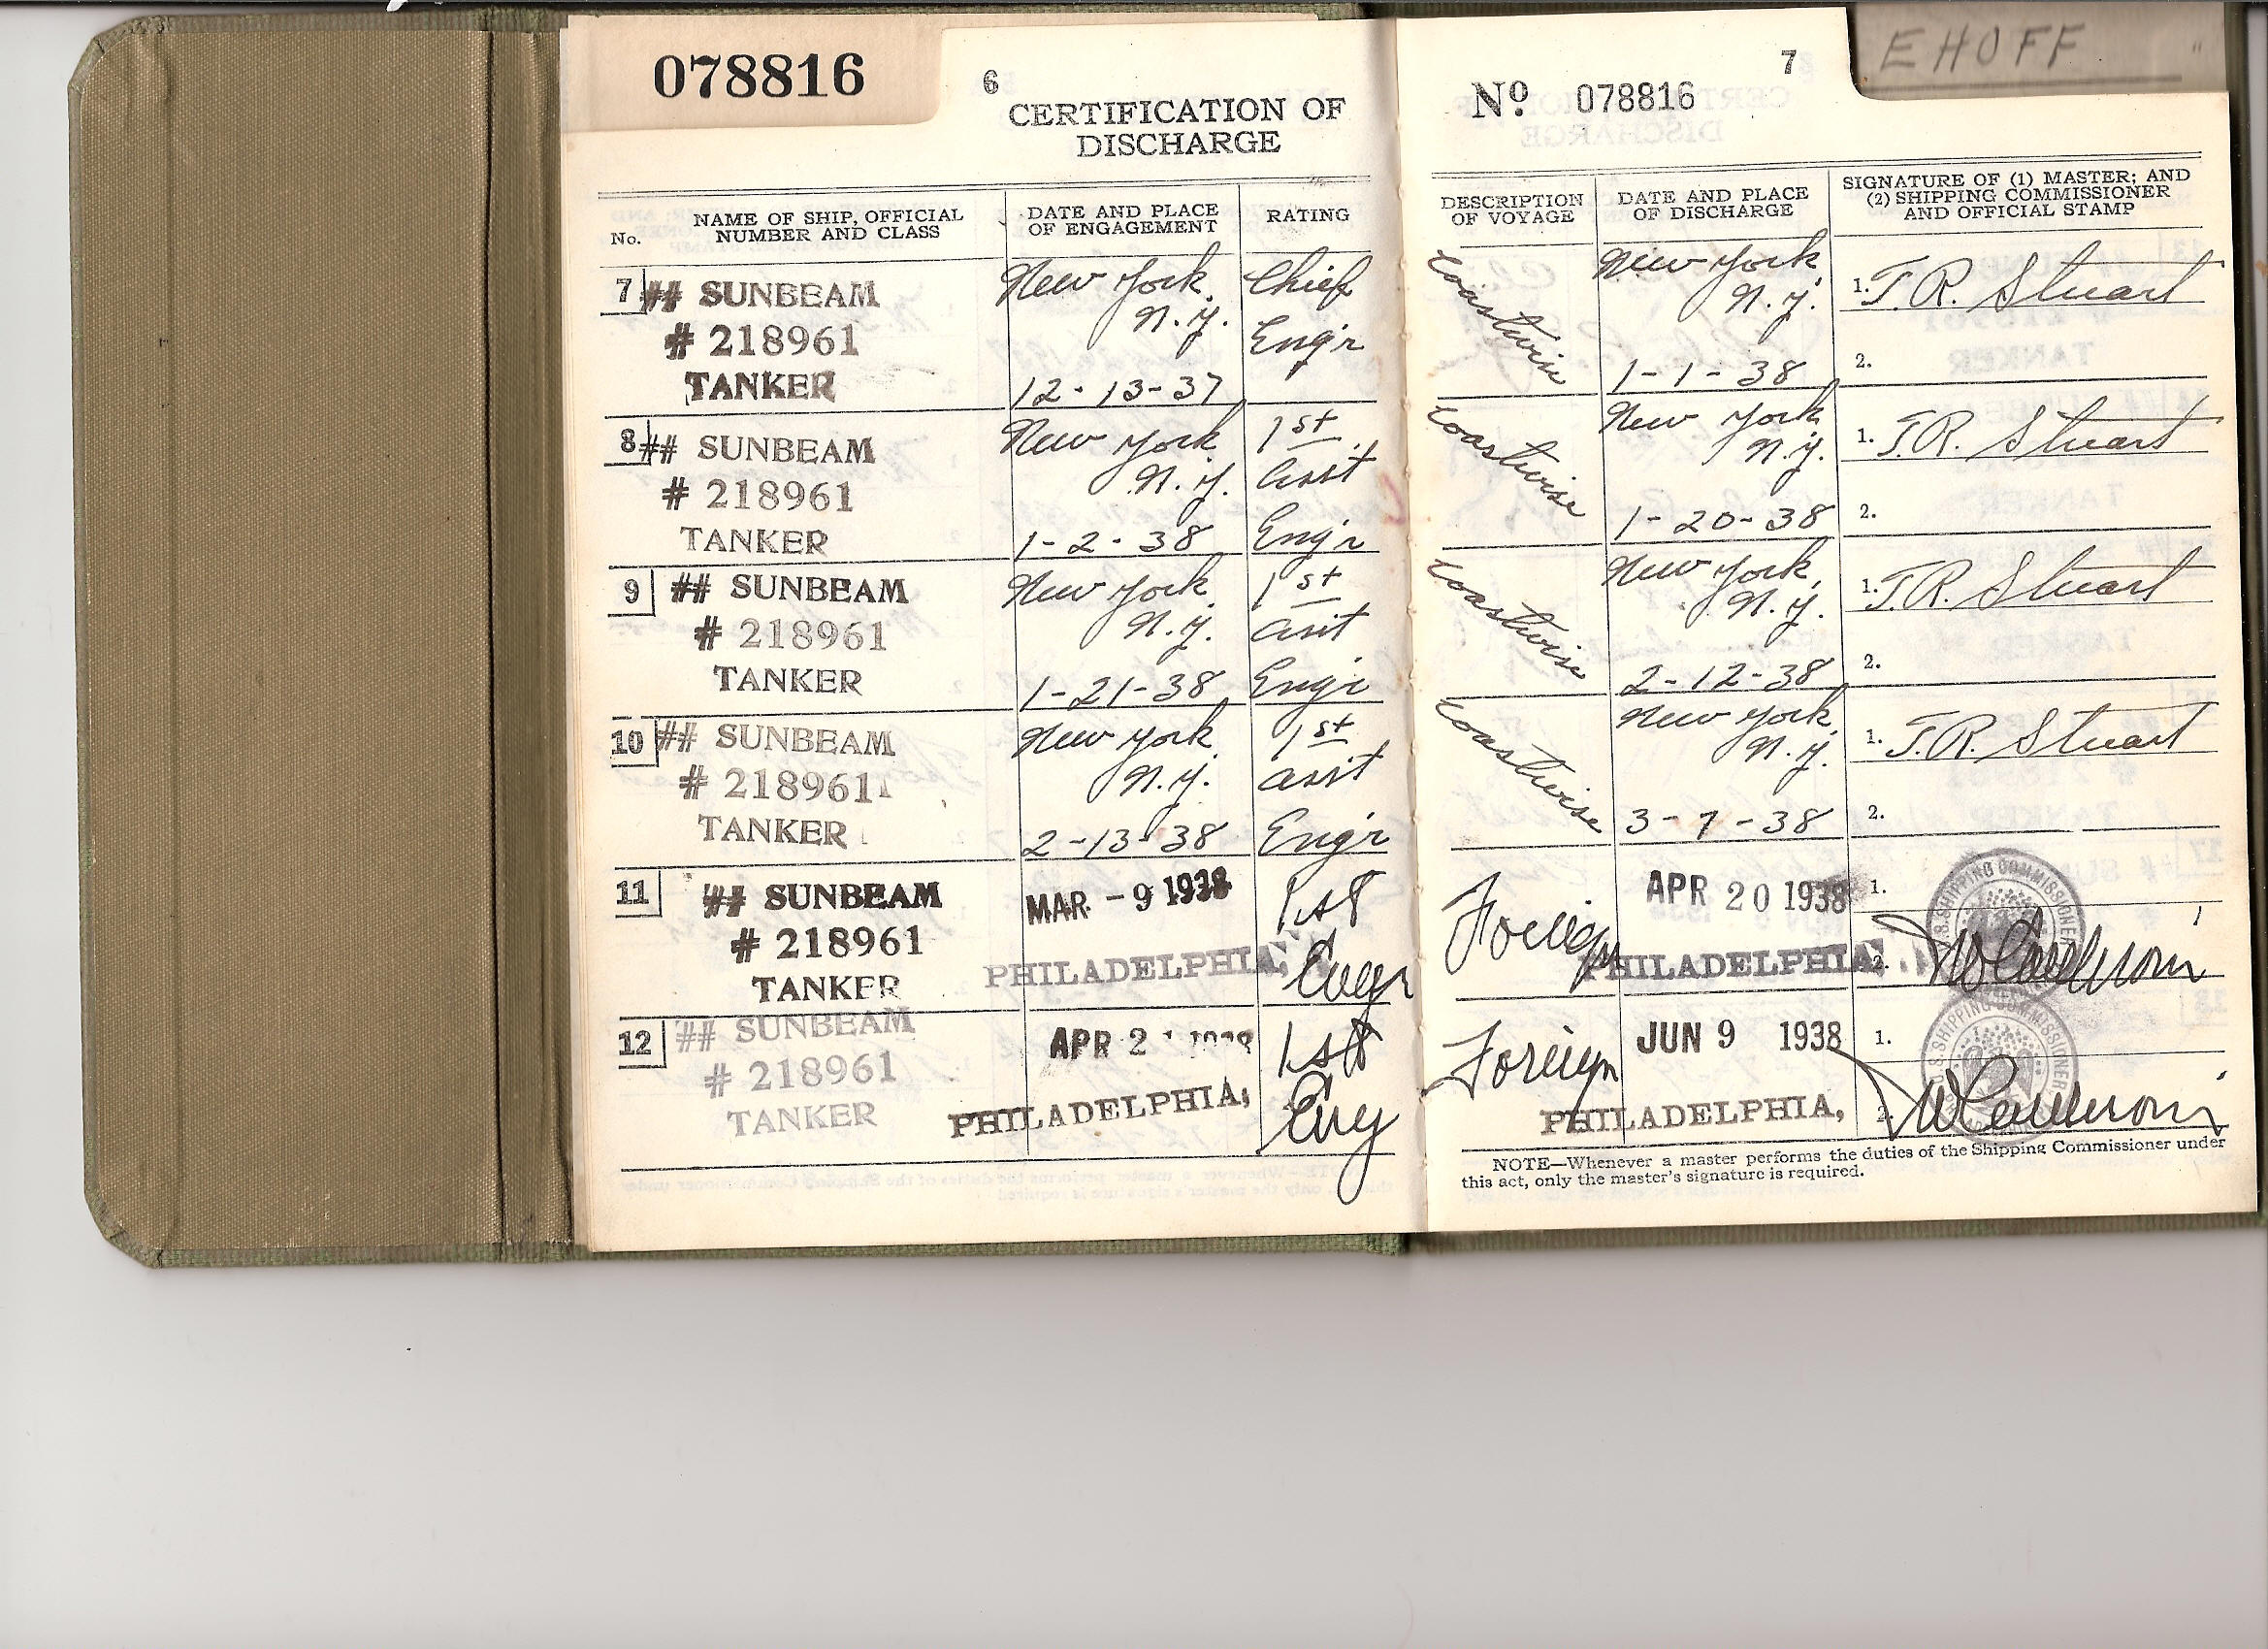 078816
6
CERTIFICATION OF
DISCHARGE
No.
NAME OF SHIP, OFFICIAL
NUMBER AND CLASS
DATE AND PLACE
OF ENGAGEMENT
RATING
7
## SUNBEAM
# 218961
TANKER
New York
N.Y.
12-13-37
Chief
Eng'r
8
## SUNBEAM
# 218961
TANKER
New York
N.Y.
1-2-38
1st
Asst
Eng'r
9
## SUNBEAM
# 218961
TANKER
New York
N.Y.
1-21-38
1st
Asst
Eng'r
10
## SUNBEAM
# 218961
TANKER
New York
N.Y.
2-13-38
1st
Asst
Eng'r
11
## SUNBEAM
# 218961
TANKER
MAR -9 1938
PHILADELPHIA,
1st
Engr
12
## SUNBEAM
# 218961
TANKER
APR 21 1938
PHILADELPHIA,
1st
Eng
EHOFF
7
No 078816
DESCRIPTION
OF VOYAGE
DATE AND PLACE
OF DISCHARGE
SIGNATURE OF (1) MASTER; AND
(2) SHIPPING COMMISSIONER
AND OFFICIAL STAMP
Coastwise
New York,
N.Y.
1-1-38
1. T.R. Stuart
2.
Coastwise
New York,
N.Y.
1-20-38
1. T.R. Stuart
2.
Coastwise
New York,
N.Y.
2-12-38
1. T.R. Stuart
2.
Coastwise
New York,
N.Y.
3-7-38
1. T.R. Stuart
2.
Foreign
APR 20 1938
PHILADELPHIA,
1.
2.
U.S. SHIPPING COMMISSIONER
Foreign
JUN 9 1938
PHILADELPHIA,
1.
2.
U.S. SHIPPING COMMISSIONER
NOTE—Whenever a master performs the duties of the Shipping Commissioner under
this act, only the master's signature is required.